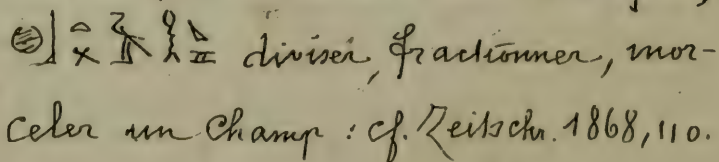 diviser, fractionner, mor-
celer un champ : cf. Zeitschr. 1868, 110.